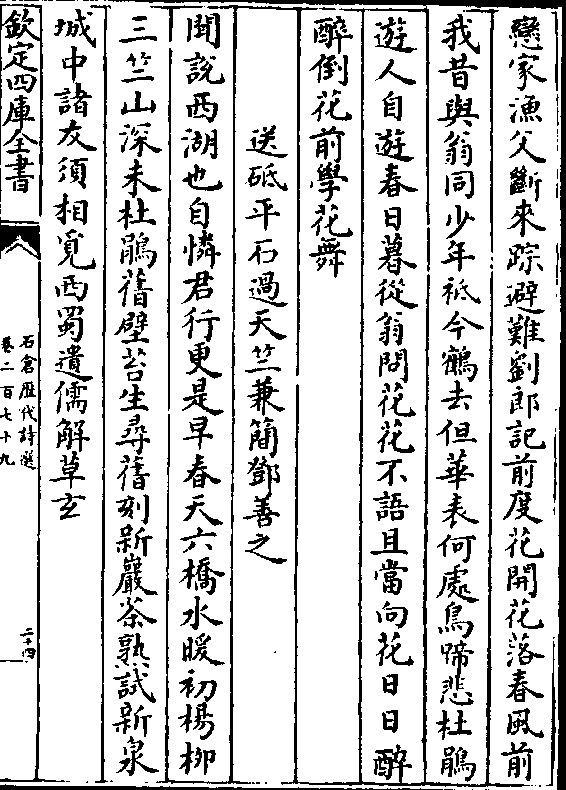 戀家漁父斷來踪避難劉郎記前度花開花落春風前
我昔與翁同少年祗今鶴去但華表何處鳥蹄悲杜鵑
遊人自遊春日暮從翁問花花不語且當向花日日醉
醉倒花前學花舞
送砥平石過天竺兼簡鄧善之
聞說西湖也自憐君行更是早春天六橋水暖初楊栁
三竺山深未杜鵑舊壁苔生尋舊刻新巖茶熟試新泉
城中諸友須相覓西蜀遺儒解草玄
欽定四庫全書
石倉歴代詩選
卷二百七十九
二十四